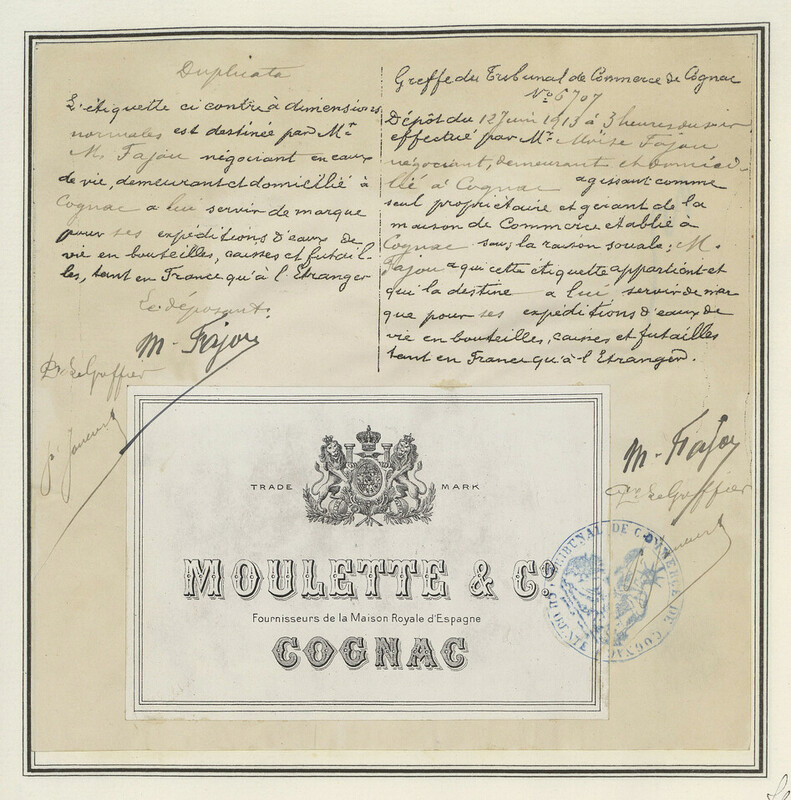 Duplicata
L'étiquette ci contre à dimensions
normales est destinée par Mr
M. Fajou négociant en eaux
de vie, demeurant et domicilié à
Cognac a lui servir de marque
pour ses expéditions d'eaux de
vie en bouteilles, caisses et futail-
les, tant en France qu'à l'Etranger
Le déposant.
M. Fajou
Pr Le Greffier
Greffe du Tribunal de Commerce de Cognac
No 6707
Dépôt du 12 Juin 1913 à 3 heures du soir
effectué par Mr. Moïse Fajou
négociant, demeurant et domici-
lié à Cognac agissant comme
seul propriétaire et gérant de la
maison de Commerce etablie à
Cognac sous la raison sociale: M.
Fajou a qui cette étiquette appartient et
qui la destine a lui servir de mar
que pour ses expéditions d'eaux de
vie en bouteilles, caisses et futailles
tant en France qu'à l'Etranger.
M. Fajou
Pr Le Greffier
TRADE MARK
MOULETTE & Co.
Fournisseurs de la Maison Royale d'Espagne
COGNAC
TRIBUNAL DE COMMERCE DE COGNAC